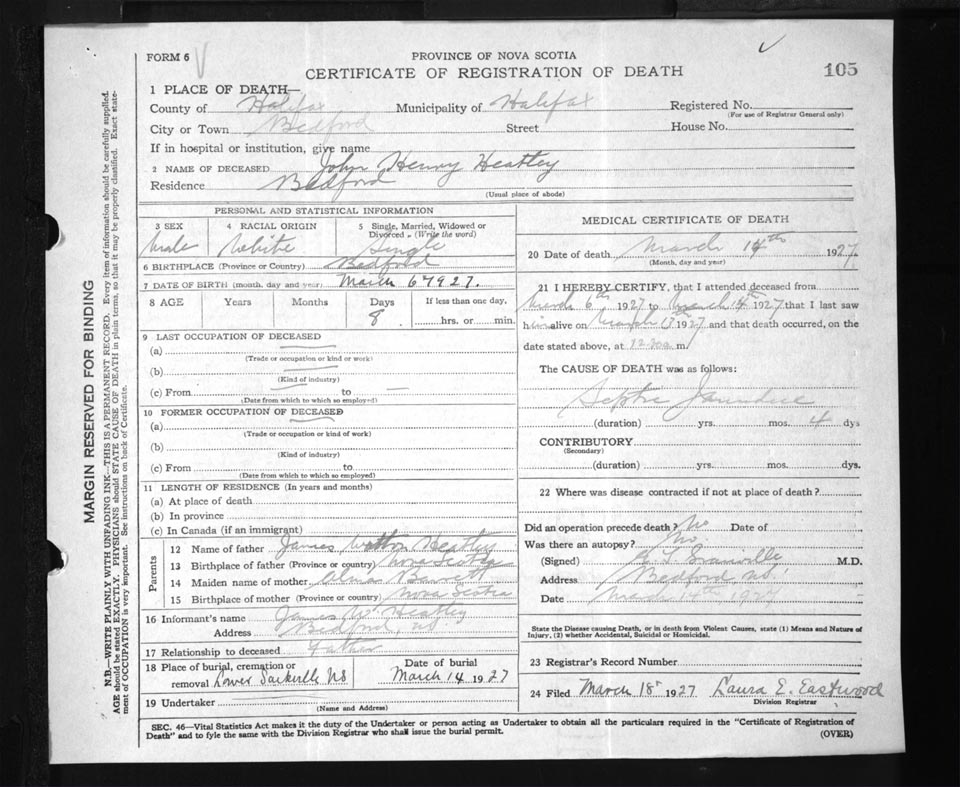 FORM 6
PROVINCE OF NOVA SCOTIA
CERTIFICATE OF REGISTRATION OF DEATH
105
1 PLACE OF DEATH—
County of Halifax Municipality of Halifax Registered No.
(For use of Registrar General only)
City or Town Bedford Street House No.
If in hospital or institution, give name
2 NAME OF DECEASED John Henry Heatley
Residence Bedford
(Usual place of abode)
PERSONAL AND STATISTICAL INFORMATION
3 SEX 4 RACIAL ORIGIN 5 Single, Married, Widowed or Divorced (Write the word)
Male White Single
6 BIRTHPLACE (Province or Country) Bedford
7 DATE OF BIRTH (month, day and year) March 6 1927.
8 AGE Years Months Days If less than one day,
8 hrs. or min.
9 LAST OCCUPATION OF DECEASED
(a)
(Trade or occupation or kind or work)
(b)
(Kind of industry)
(c) From to
(Date from which to which so employed)
10 FORMER OCCUPATION OF DECEASED
(a)
(Trade or occupation or kind of work)
(b)
(Kind of industry)
(c) From to
(Date from which to which so employed)
11 LENGTH OF RESIDENCE (In years and months)
(a) At place of death
(b) In province
(c) In Canada (if an immigrant)
Parents
12 Name of father James Heatley
13 Birthplace of father (Province or country) Nova Scotia
14 Maiden name of mother Alma Barrett
15 Birthplace of mother (Province or country) Nova Scotia
16 Informant's name James W. Heatley
Address Bedford, NS
17 Relationship to deceased Father
18 Place of burial, cremation or removal Lower Sackville NS
Date of burial
March 14 1927
19 Undertaker
(Name and Address)
MEDICAL CERTIFICATE OF DEATH
20 Date of death March 14th 1927.
(Month, day and year)
21 I HEREBY CERTIFY, that I attended deceased from
March 6th 1927 to March 14th 1927 that I last saw
him alive on March 1927 and that death occurred, on the
date stated above, at m.
The CAUSE OF DEATH was as follows:
Septic Jaundice
(duration) yrs. mos. 4 dys
CONTRIBUTORY
(Secondary)
(duration) yrs. mos. dys.
22 Where was disease contracted if not at place of death?
Did an operation precede death? No Date of
Was there an autopsy? No.
(Signed) M.D.
Address Bedford NS.
Date March 14th 1927
State the Disease causing Death, or in death from Violent Causes, state (1) Means and Nature of
Injury, (2) whether Accidental, Suicidal or Homicidal.
23 Registrar's Record Number
24 Filed March 18 1927 Laura E. Eastwood
Division Registrar
SEC. 46—Vital Statistics Act makes it the duty of the Undertaker or person acting as Undertaker to obtain all the particulars required in the "Certificate of Registration of
Death" and to fyle the same with the Division Registrar who shall issue the burial permit.
(OVER)
MARGIN RESERVED FOR BINDING
N.B.—WRITE PLAINLY WITH UNFADING INK—THIS IS A PERMANENT RECORD. Every item of information should be carefully supplied.
AGE should be stated EXACTLY. PHYSICIANS should STATE CAUSE OF DEATH in plain terms, so that it may be properly classified. Exact state-
ment of OCCUPATION is very important. See instructions on back of Certificate.